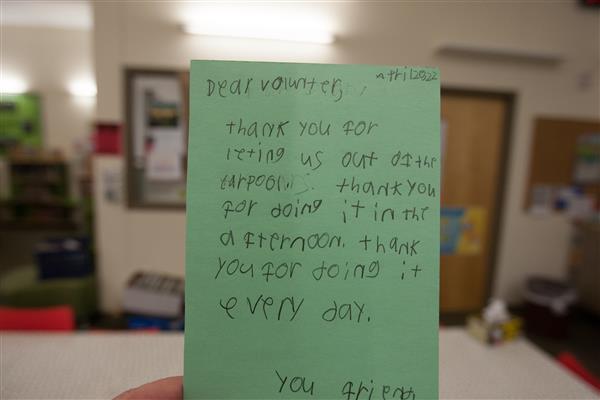 April 2022
Dear volunters,
thank you for
leting us out of the
carpool. thank you
for doing it in the
afternoon. thank
you for doing it
every day.
you friend